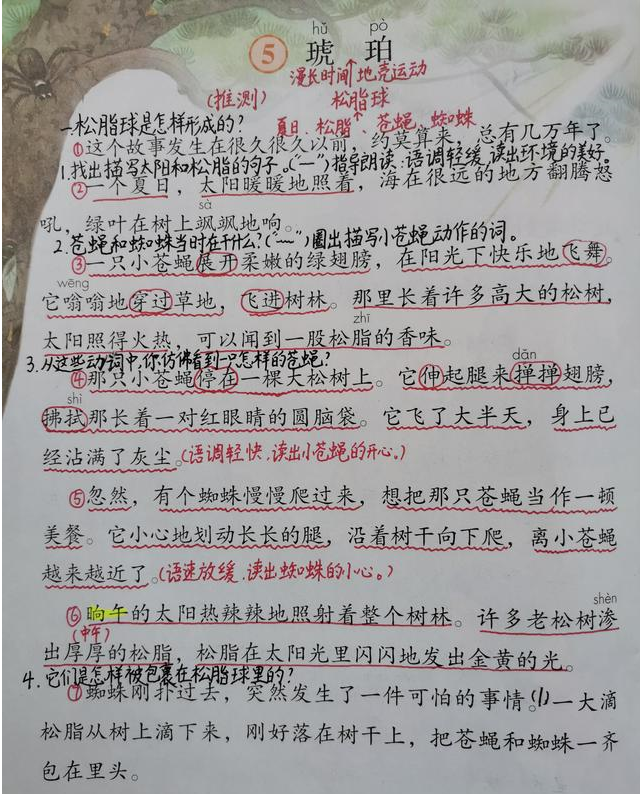 hǔ pò
5 琥珀
漫长时间↑地壳运动
(推测) 松脂球
一松脂球是怎样形成的?
夏日、松脂↑、苍蝇、蜘蛛
①这个故事发生在很久很久以前，约莫算来，总有几万年了。
1.找出描写太阳和松脂的句子。("—")指导朗读:语调轻缓,读出环境的美好。
②一个夏日，太阳暖暖地照着，海在很远的地方翻腾怒
sà
吼，绿叶在树上飒飒地响。
2.苍蝇和蜘蛛当时在干什么?("﹏")圈出描写小苍蝇动作的词。
③一只小苍蝇展开柔嫩的绿翅膀，在阳光下快乐地飞舞。
wēng
它嗡嗡地穿过草地，飞进树林。那里长着许多高大的松树，
zhī
太阳照得火热，可以闻到一股松脂的香味。
3.从这些动词中,你仿佛看到一只怎样的苍蝇?
dǎn
④那只小苍蝇停在一棵大松树上。它伸起腿来掸掸翅膀，
shì
拂拭那长着一对红眼睛的圆脑袋。它飞了大半天，身上已
经沾满了灰尘。(语调轻快,读出小苍蝇的开心。)
⑤忽然，有个蜘蛛慢慢爬过来，想把那只苍蝇当作一顿
美餐。它小心地划动长长的腿，沿着树干向下爬，离小苍蝇
越来越近了。(语速放缓,读出蜘蛛的小心。)
⑥晌午的太阳热辣辣地照射着整个树林。许多老松树渗
(中午) shèn
出厚厚的松脂，松脂在太阳光里闪闪地发出金黄的光。
4.它们是怎样被包裹在松脂球里的?
⑦蜘蛛刚扑过去，突然发生了一件可怕的事情。(1)一大滴
松脂从树上滴下来，刚好落在树干上，把苍蝇和蜘蛛一齐
包在里头。